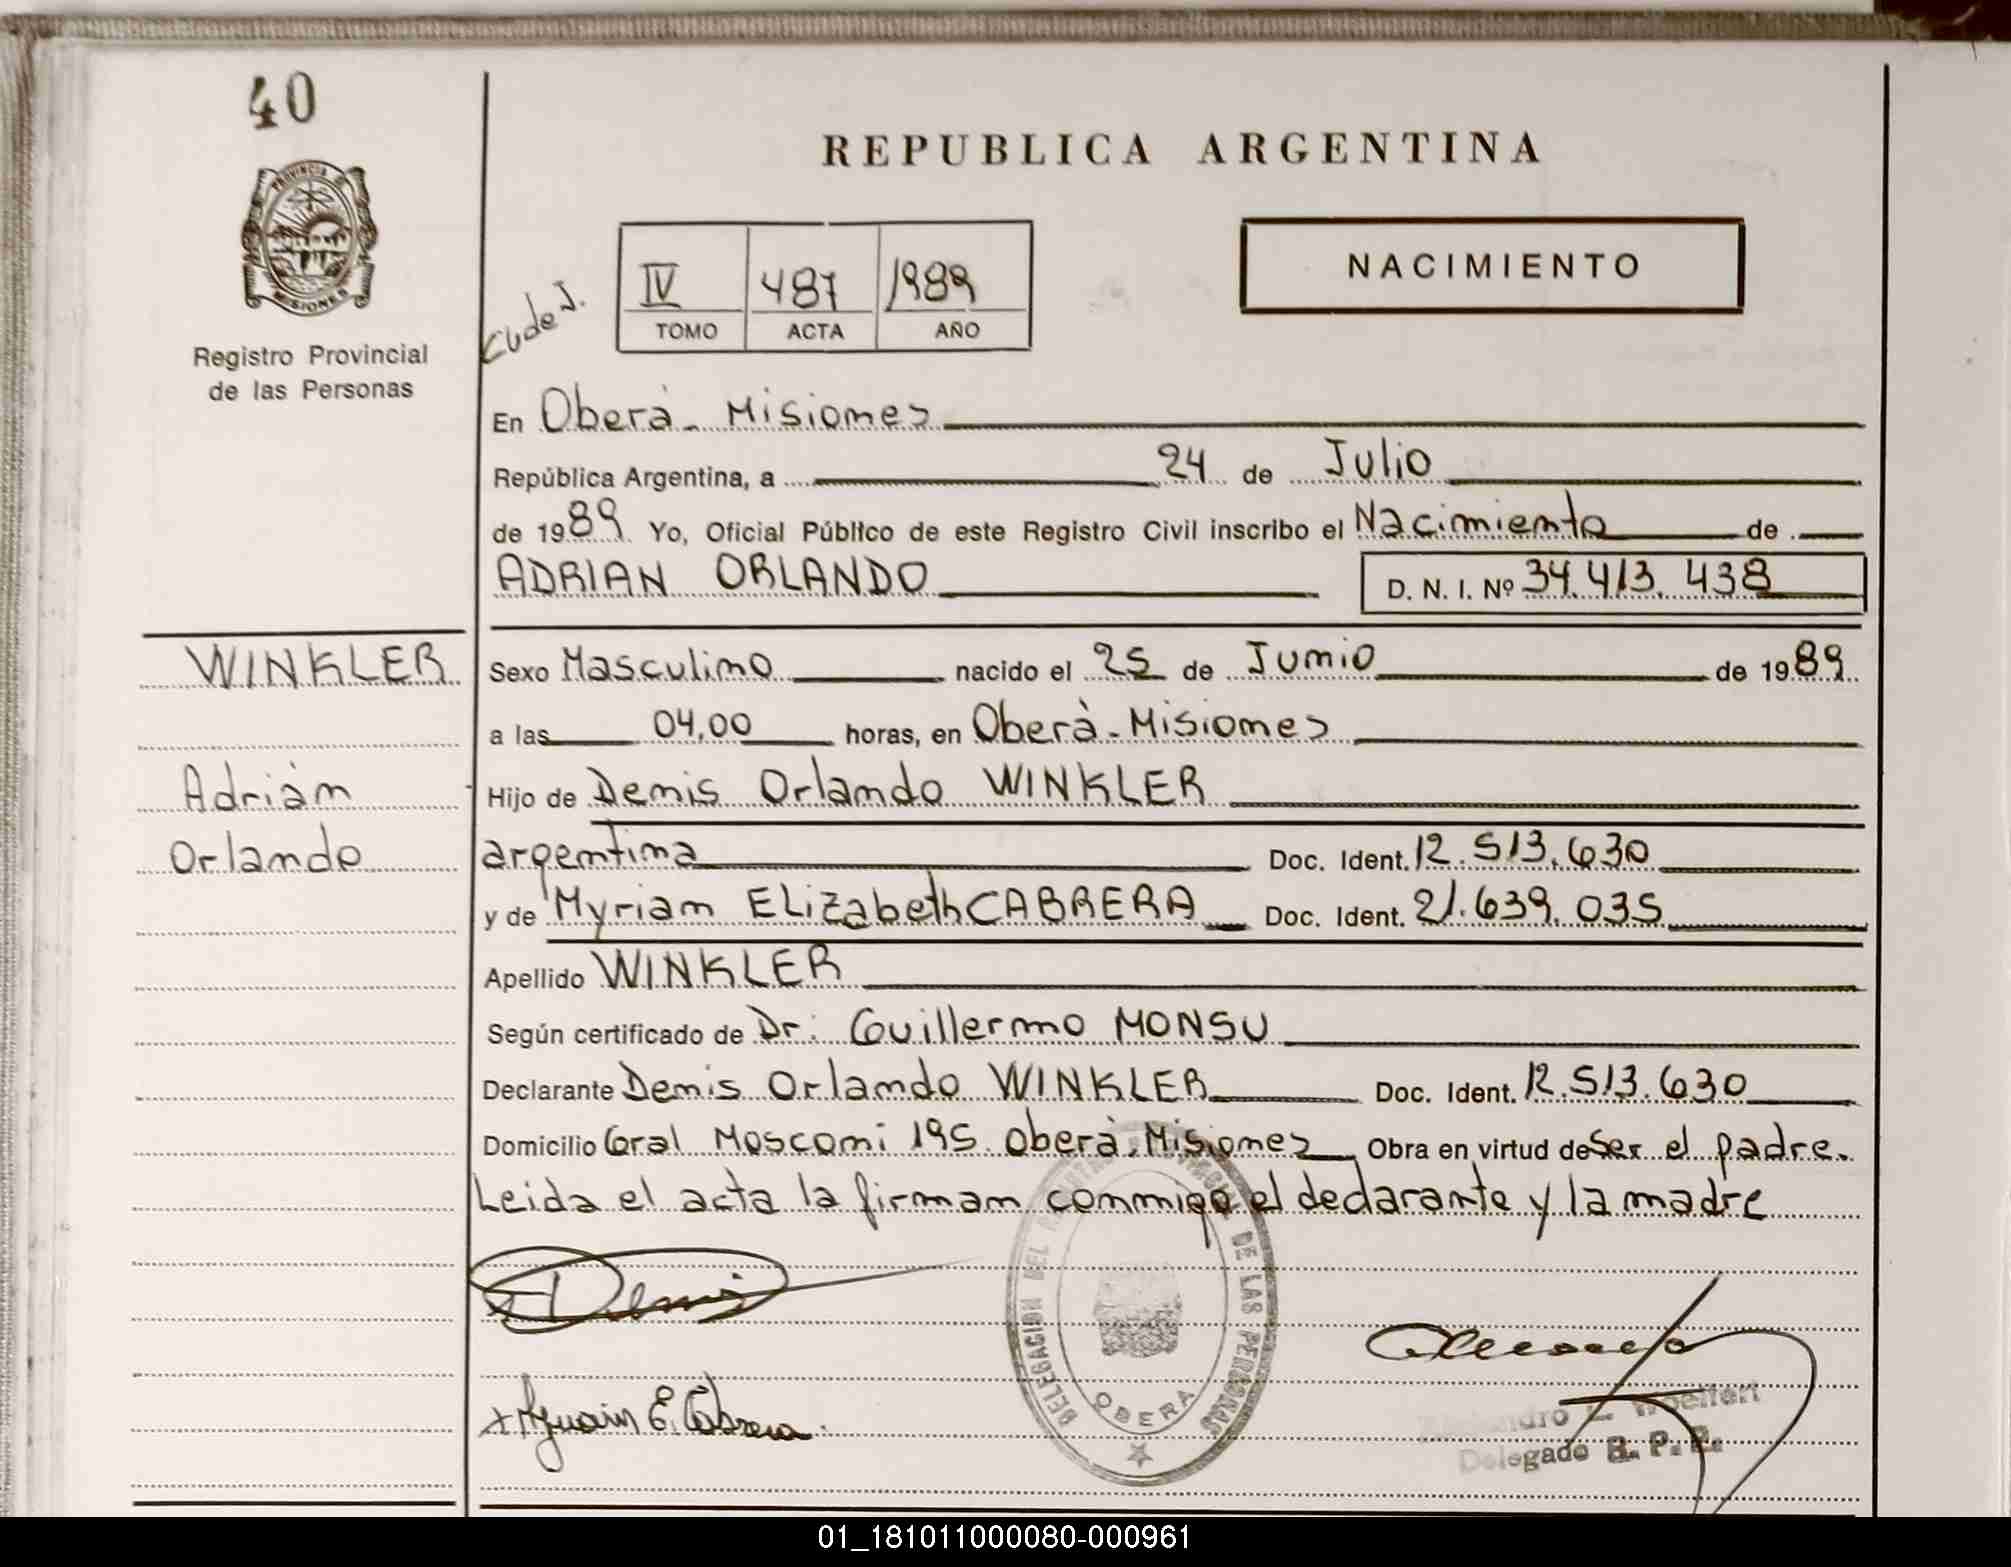 40
REPUBLICA ARGENTINA
PROVINCIA DE
MISIONES
Registro Provincial
de las Personas
IV 487 1989
TOMO ACTA AÑO
NACIMIENTO
En Oberà - Misiones
República Argentina, a 24 de Julio
de 1989 Yo, Oficial Público de este Registro Civil inscribo el Nacimiento de
ADRIAN ORLANDO D. N. I. Nº 34.413.438
WINKLER
Sexo Masculino nacido el 25 de Junio de 1989
a las 04,00 horas, en Oberà - Misiones
Adriàn
Hijo de Denis Orlando WINKLER
Orlando
argentina Doc. Ident. 12.513.630
y de Myriam ELizabeth CABRERA Doc. Ident. 21.639.035
Apellido WINKLER
Según certificado de Dr: Guillermo MONSU
Declarante Denis Orlando WINKLER Doc. Ident. 12.513.630
Domicilio Gral Mosconi 195. Oberà, Misiones Obra en virtud de Ser el padre.
Leida el acta la firman conmigo el declarante y la madre
Denis
E. Cabrera.
DELEGACION DEL REGISTRO PROVINCIAL DE LAS PERSONAS
OBERA
Delegado R. P. P.
01_181011000080-000961